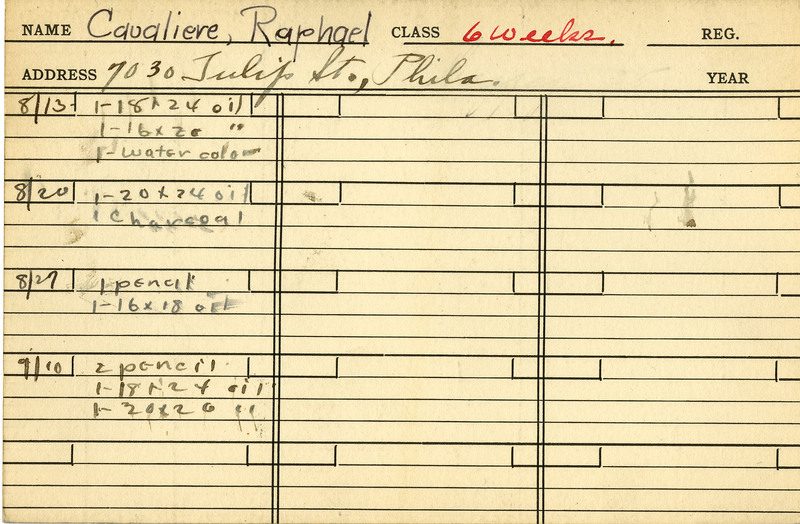 NAME Cavaliere, Raphael CLASS 6 weeks. REG.
ADDRESS 7030 Tulip St., Phila. YEAR
8/13 1-18x24 oil
1-16x20 "
1-water color
8/20 1-20x24 oil
1 charcoal
8/27 1 pencil
1-16x18 oil
9/10 2 pencil
1-18x24 oil
1-20x20 "